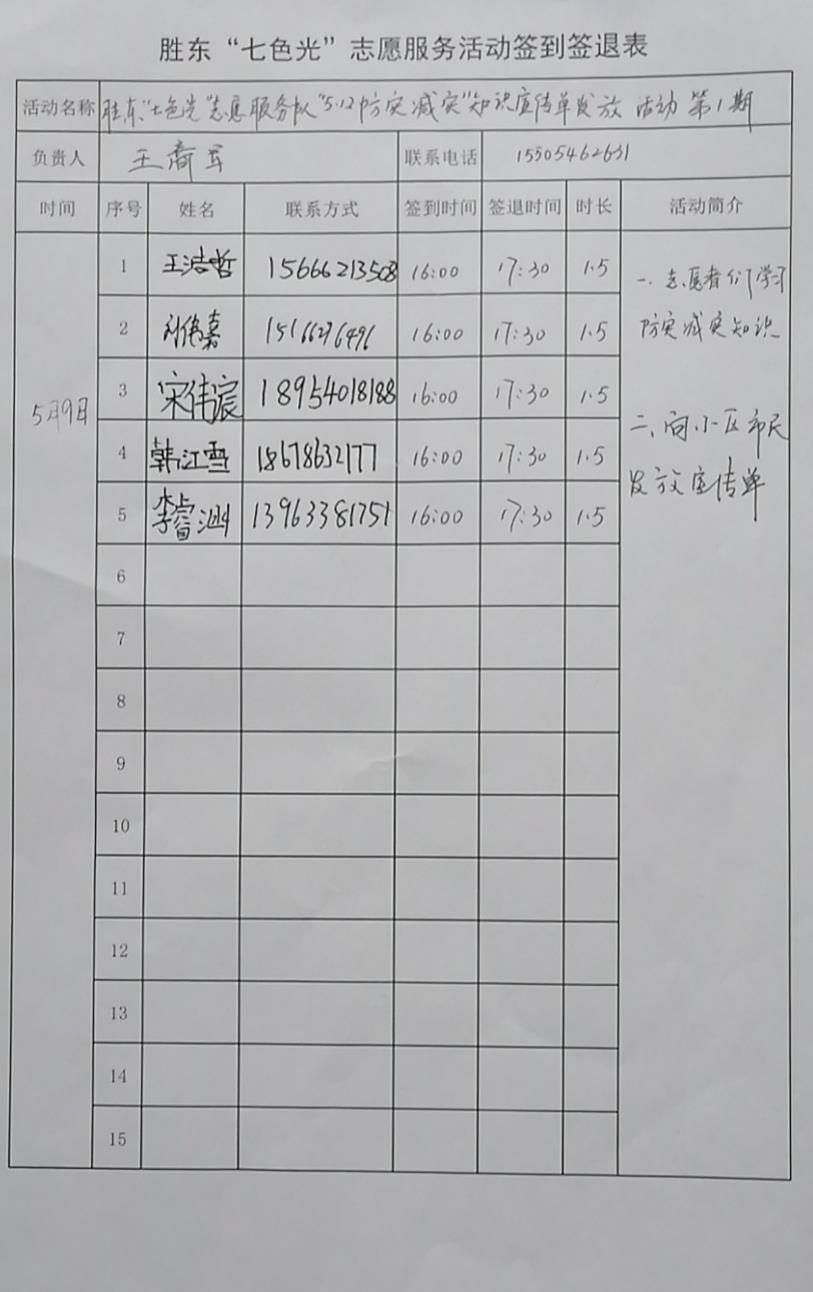 胜东“七色光”志愿服务活动签到签退表
活动名称 胜东“七色光”志愿服务队“5·12防灾减灾”知识宣传单发放 活动 第1期
负责人 王 军 联系电话 15505462631
时间 序号 姓名 联系方式 签到时间 签退时间 时长 活动简介
5月9日
1 王浩哲 15666213508 16:00 17:30 1.5
2 刘伟嘉 15166276496 16:00 17:30 1.5
3 宋伟宸 18954018188 16:00 17:30 1.5
4 韩江雪 18678632177 16:00 17:30 1.5
5 李睿涵 13963381751 16:00 17:30 1.5
一、志愿者们学习
防灾减灾知识
二、向小区市民
发放宣传单
6
7
8
9
10
11
12
13
14
15